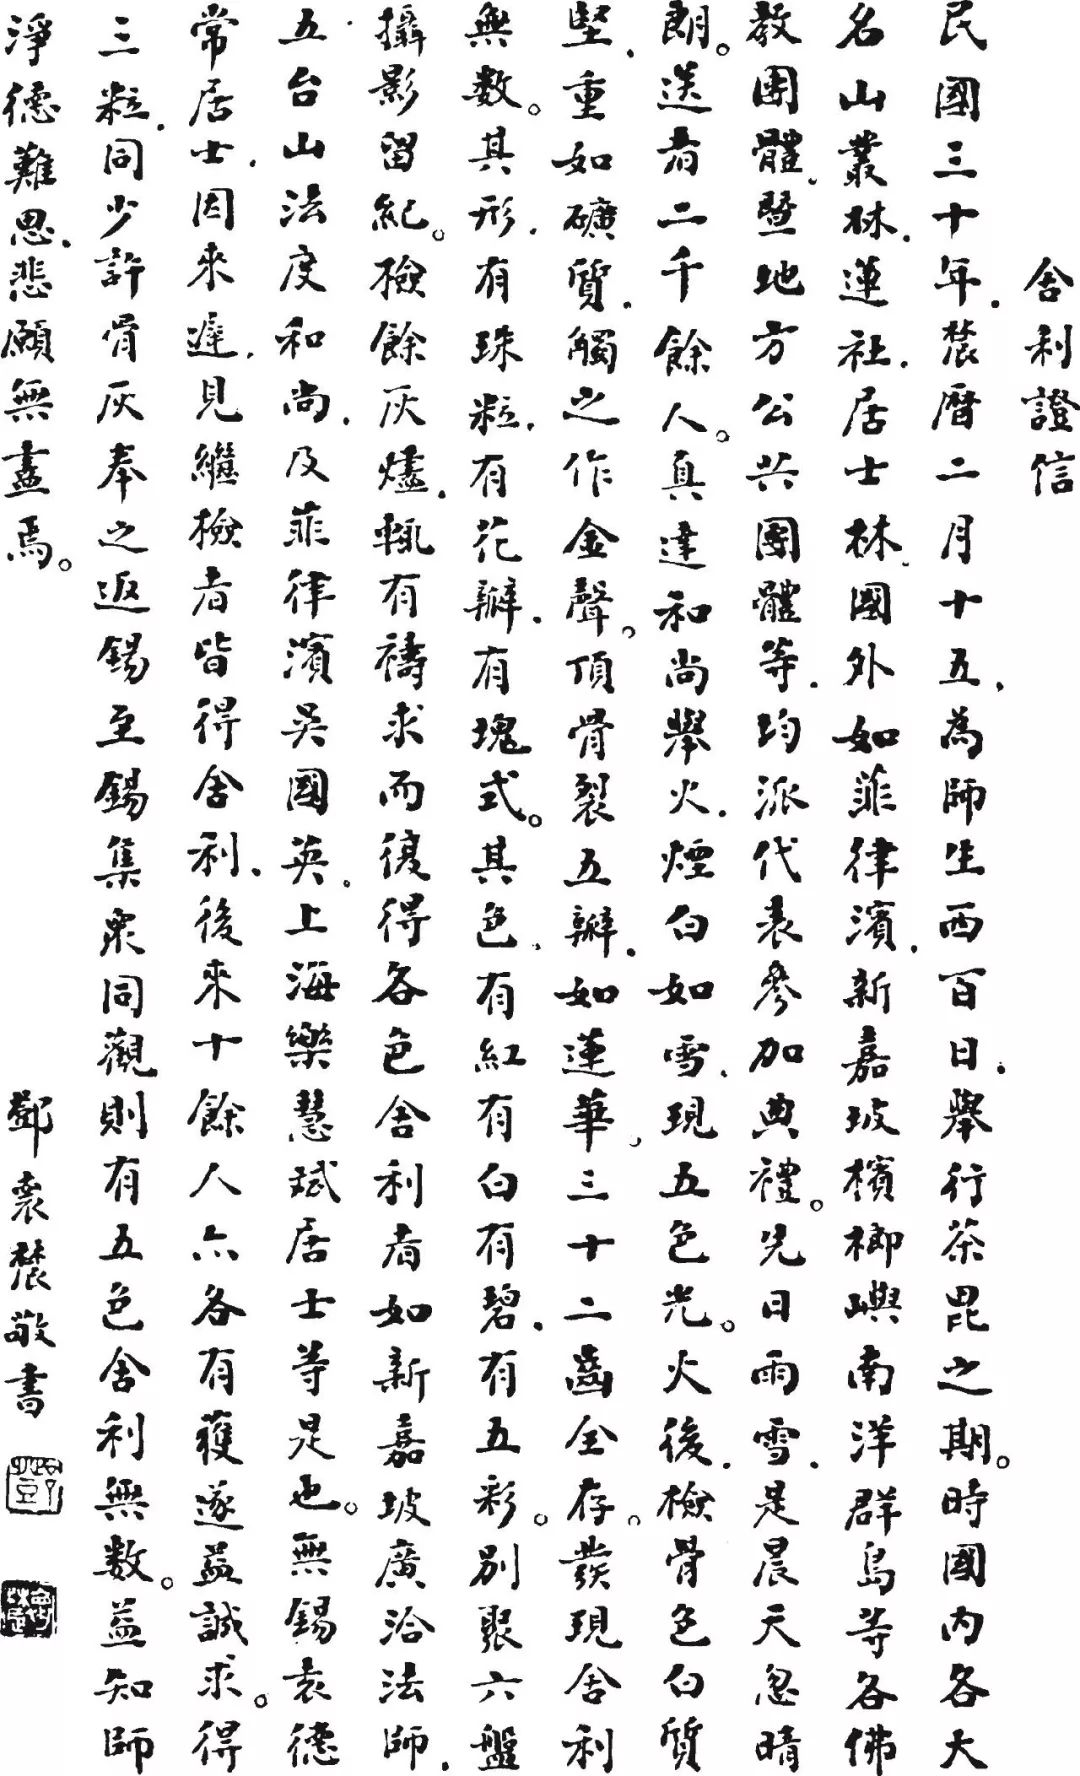 舍利證信
民國三十年．農曆二月十五．為師生西百日．舉行荼毘之期。時國內各大
名山叢林．蓮社．居士林．國外如菲律濱．新嘉坡檳榔嶼南洋群島等各佛
教團體．暨地方公共團體等．均派代表參加典禮。先日雨雪．是晨天忽晴
朗。送者二千餘人。真達和尚舉火．煙白如雪．現五色光。火後．檢骨色白質
堅．重如礦質．觸之作金聲。頂骨裂五瓣．如蓮華．三十二齒全存。發現舍利
無數。其形．有珠粒．有花瓣．有塊式。其色．有紅有白有碧．有五彩。別聚六盤
攝影留紀。檢餘灰燼．輒有禱求而復得各色舍利者如新嘉坡廣洽法師．
五台山法度和尚．及菲律濱吳國英．上海樂慧斌居士等是也。無錫袁德
常居士．因來遲．見繼檢者皆得舍利．後來十餘人亦各有獲遂益誠求。得
三粒．同少許骨灰奉之返錫至錫集眾同觀則有五色舍利無數。益知師
淨德難思．悲願無盡焉。
鄧袁農敬書